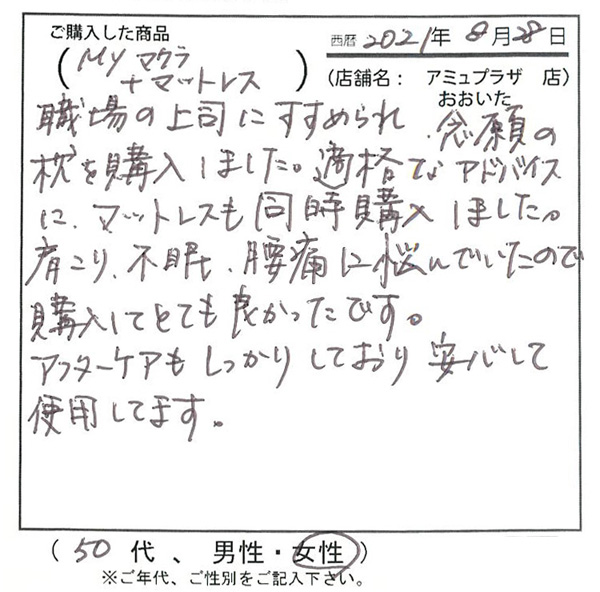 ご購入した商品
西暦 2021年 8月28日
(MYマクラ
+マットレス)
(店舗名: アミュプラザ 店)
おおいた
職場の上司にすすめられ、念願の
枕を購入しました。適格なアドバイス
に、マットレスも同時購入しました。
肩こり、不眠、腰痛に悩んでいたので
購入してとても良かったです。
アフターケアもしっかりしており安心して
使用してます。
(50代、男性・女性)
※ご年代、ご性別をご記入下さい。